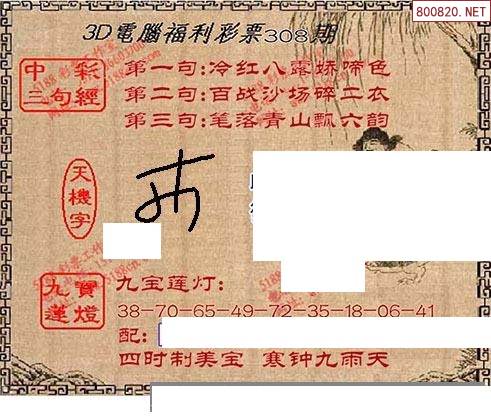 800820.NET
3D電腦福利彩票308期
中彩三句經
第一句:冷红八露娇啼色
第二句:百战沙场碎二衣
第三句:笔落青山飘六韵
天機字
九寶蓮燈
九宝莲灯:
38-70-65-49-72-35-18-06-41
配:
四时制美宝 寒钟九雨天